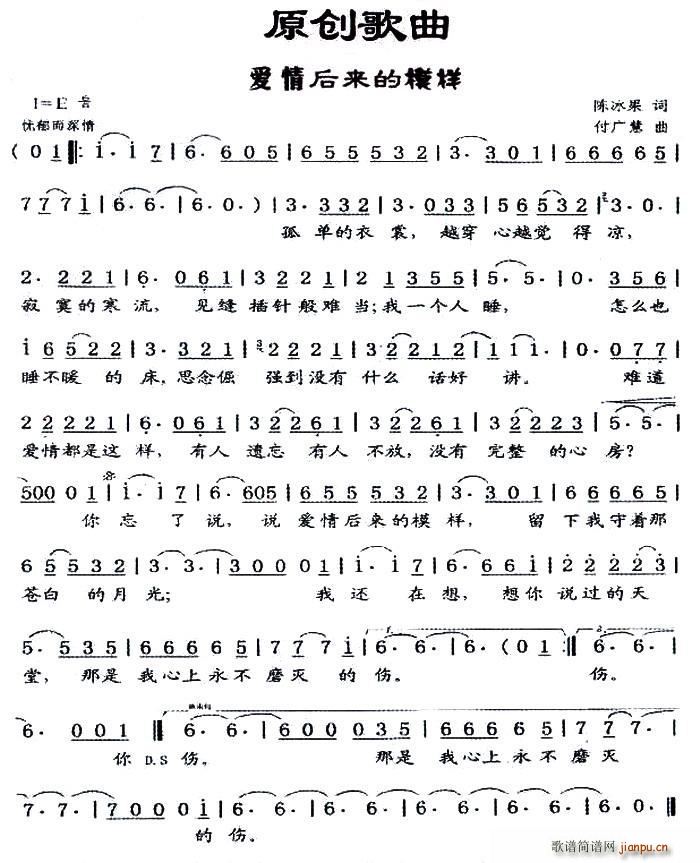 原创歌曲
爱情后来的模样
1=E
陈冰果 词
忧郁而深情
付广慧 曲
(0 1 ‖: i· i 7 | 6· 6 0 5 | 6 5 5 5 5 | 3· 3 0 1 | 6 6 6 6 5 |
7 7 7 i | 6· 6· | 6· 6· | 6· 0· ) | 3· 3 3 2 | 3· 0 3 3 | 5 6 5 3 2 | 3· 0· |
孤 单的衣 裳, 越穿 心越觉 得 凉,
2· 2 2 1 | 6· 0 6 1 | 3 2 2 1 | 2 1 3 5 5 | 5· 5· | 0· 3 5 6 |
寂 寞的寒 流, 见缝 插针般难 当;我一个人 睡, 怎么也
i 6 5 2 2 | 3· 3 2 1 | 2 2 2 2 1 | 3 2 2 1 2 | 1· 1· | 0· 0 7 7 |
睡不暖 的 床,思念倔 强到没有 什么 话好 讲。 难道
2 2 2 2 1 | 6· 0 6 1 | 3 2 2 6 1 | 3 2 2 6 1 | 3 2 2 2 3 | 5· 5· |
爱情都是这 样, 有人 遗忘 有人 不放,没有 完整 的心 房?
5 0 0 0 1 | i· i 7 | 6· 6 0 5 | 6 5 5 5 5 | 3· 3 0 1 | 6 6 6 6 5 |
你 忘 了 说, 说 爱情后来的模 样, 留 下我守着那
6 5 5 3 2 | 3· 3· | 3 0 0 0 1 | i· i 7 | 6· 6 6 i | 2 2 2 2 3 |
苍白 的月 光; 我 还 在 想, 想你 说过的天
5· 5 3 5 | 6 6 6 6 5 | 7 7 7 i | 6· 6· | 6· 6· | 6· (0 1 :‖ 6· 6· | 6· 6· |
堂, 那是 我心上永不 磨灭 的 伤。 伤。
6· 0 0 1 ‖ 6· 6· | 6 0 0 0 3 5 | 6 6 6 6 5 | 7 7 7· |
你 D.S 伤。 那是 我心上永不 磨灭
7· 7· | 7 0 0 0 i | 6· 6· | 6· 6· | 6· 6· | 6· 0· ‖
的 伤。
歌谱简谱网
jianpu.cn